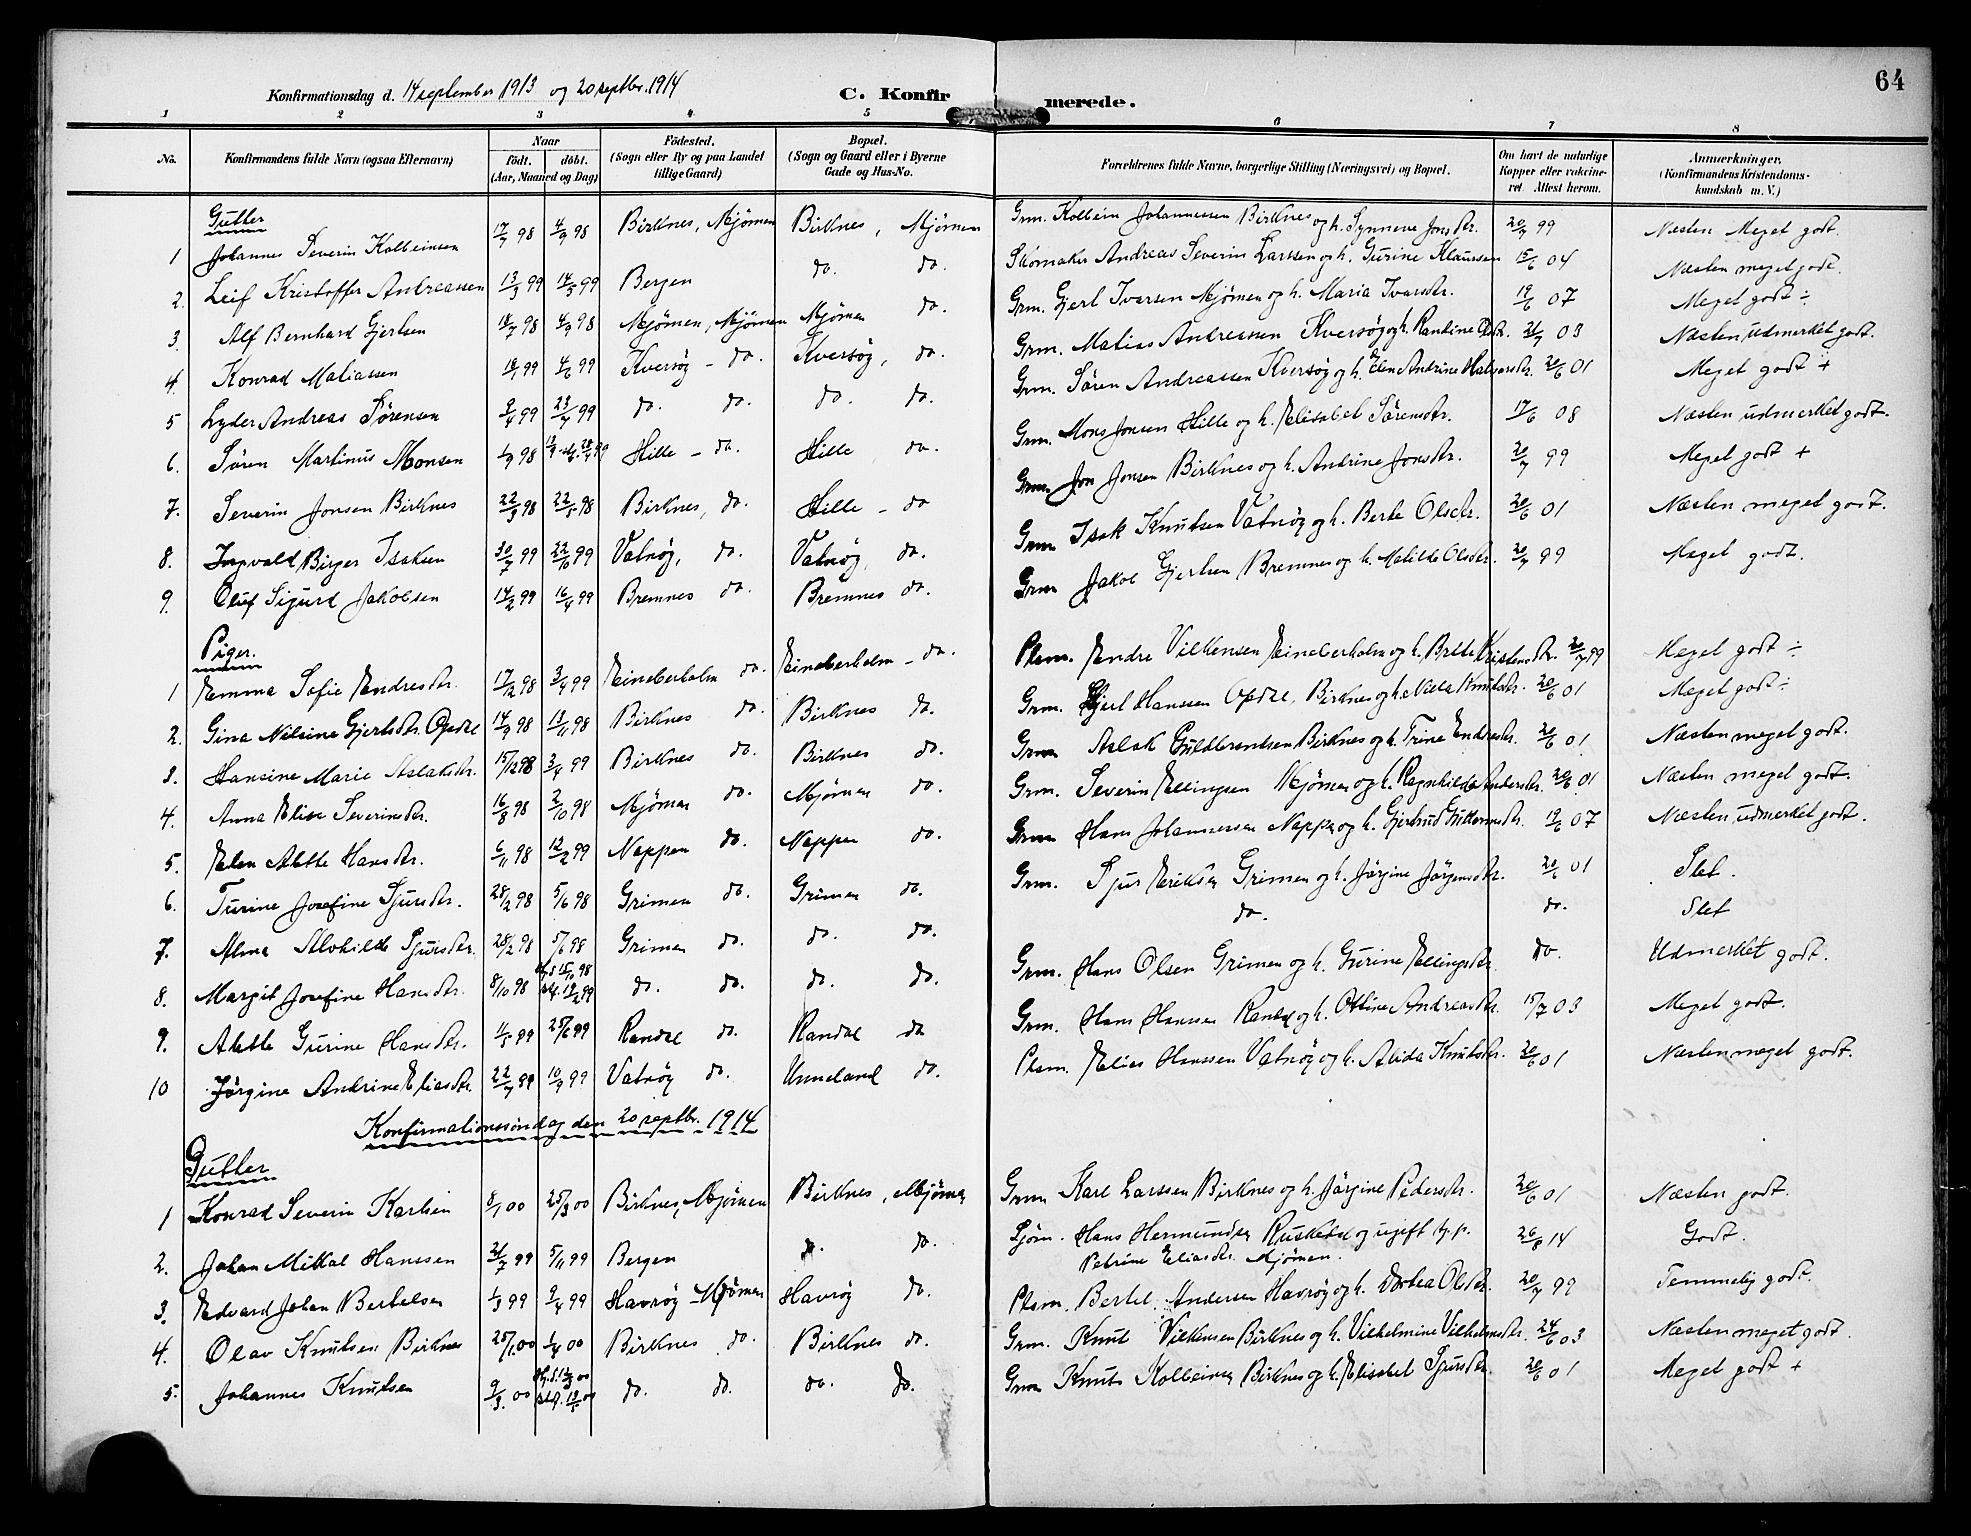 64
Konfirmationsdag d. 14 september 1913 og 20 septbr. 1914
C. Konfirmerede.
1 2 3 4 5 6 7 8
No. Konfirmandens fulde Navn (ogsaa Efternavn) Naar født. døbt. (Aar, Maaned og Dag) Födested. (Sogn eller By og paa Landet tillige Gaard) Bopæl. (Sogn og Gaard eller i Byerne Gade og Hus-No. Forældrenes fulde Navne, borgerlige Stilling (Næringsvei) og Bopæl. Om havt de naturlige Kopper eller vaccineret. Attest herom. Anmærkninger. (Konfirmandens Kristendomskundskab m. V.)
Gutter
1 Johannes Severin Kolbeinsen 17/7 98 4/9 98 Birknes, Mjømen Birknes, Mjømen Grm. Kolbein Johannessen Birknes og h. Synneve Jonsdtr. 20/7 99 Næsten Meget godt.
2. Leif Kristoffer Andreassen 13/3 99 14/5 99 Bergen do. do. Skomaker Andreas Severin Larssen og h. Gurine Klaussen 15/6 04 Næsten meget godt.
3. Alf Bernhard Gjertsen 18/7 98 4/9 98 Mjømen, Mjømen Mjømen do. Grm. Gjert Ivarsen Mjømen og h. Maria Ivarsdtr. 19/6 07 Meget godt ÷
4. Konrad Matiassen 18/1 99 4/6 99 Kversøg - do. Kversøg, do. Grm. Matias Andreassen Kversøg og h. Randine Olsdtr. 21/7 03 Næsten udmerket godt.
5 Lyder Andreas Sørensen 9/4 99 23/7 99 do. do. do. do. Grm. Søren Andreassen Kversøg og h. Elen Andrine Halvorsdtr. 20/6 01 Meget godt +
6. Søren Martinus Monsen 1/9 98 Hille - do. Hille do. Grm. Mons Jonsen Hille og h. Elisabet Sørensdtr. 17/6 08 Næsten udmerket godt.
7. Severin Jonsen Birknes 22/3 98 22/5 98 Birknes, do. Hille - do Grm. Jon Jonsen Birknes og h. Andrine Jonsdtr. 20/7 99 Meget godt +
8. Ingvald Birger Isaksen 30/7 99 22/10 99 Vatnøg, do. Vatnøg, do. Grm Isak Knutsen Vatnøg og h. Berte Olsdtr. 20/6 01 Næsten meget godt.
9. Oluf Sigurd Jakobsen 14/2 99 16/4 99 Bremnes do. Bremnes do. Grm Jakob Gjertsen Bremnes og h. Matilde Olsdtr. 20/7 99 Meget godt.
Piger.
1 Emma Sofie Endresdtr. 17/12 98 3/4 99 Eineberholm do. Eineberholm - do. Plsm. Endre Vilkensen Eineberholm og h. Brite Kristensdtr. 20/7 99 Meget godt ÷
2. Gina Nilsine Gjertsdtr. Opdal 14/9 98 13/11 98 Birknes do. Birknes do. Grm. Gjert Hanssen Opdal, Birknes og h. Nilla Knutsdtr. 20/6 01 Meget godt ÷
3. Hansine Marie Aslaksdtr. 15/12 98 3/4 99 Birknes do. Birknes do. Grm Aslak Guldbrantsen Birknes og h. Trine Endresdtr. 20/6 01 Næsten meget godt.
4. Anna Elise Severinsdtr. 16/8 98 2/10 98 Mjømen do. Mjømen do. Grm. Severin Ellingsen Mjømen og h. Ragnhilda Andersdtr. 20/6 01 Næsten meget godt.
5. Elen Alette Hansdtr. 6/11 98 12/2 99 Nappen do. Nappen do. Grm Hans Johannessen Nappen og h. Gjertrud Guttormsdtr. 19/6 07 Næsten udmerket godt.
6. Turine Josefine Sjursdtr. 28/2 98 5/6 98 Grimen do. Grimen do. Grm. Sjur Eriksen Grimen og h. Jørgine Jørgensdtr. 20/6 01 Slet.
7. Alma Alvhilde Sjursdtr. 28/2 98 5/6 98 Grimen do. do. do. do. do. Slet
8. Margit Josefine Hansdtr. 8/10 98 do. do. do. do. Grm. Hans Olsen Grimen og h. Gurine Ellingsdtr. do. Udmerket godt.
9. Alette Gurine Hansdtr. 11/5 99 25/6 99 Randal do. Randal do Grm. Hans Hanssen Randal og h. Oline Andreasdtr. 15/7 03 Meget godt.
10 Jørgine Andrine Eliasdtr. 22/7 99 10/9 99 Vatnøg do. Unneland do. Plsm. Elias Hanssen Vatnøg og h. Alida Knutsdtr. 20/6 01 Næsten meget godt.
Konfirmationssøndag den 20 septbr. 1914
Gutter
1 Konrad Severin Karlsen 8/1 00 25/3 00 Birknes, Mjømen Birknes, Mjømen Grm Karl Larssen Birknes og h. Jørgine Pedersdtr. 20/6 01 Næsten godt.
2. Johan Mikal Hanssen 21/7 99 5/11 99 Bergen do. do. Sjøm. Hans Hermundsen og ugift 26/8 14 Godt.
Petrine Eliasdtr. Mjømen.
3. Edvard Johan Bertelsen 1/3 99 9/4 99 Havrøg - Mjømen Havrøg do. Plsm. Bertel Andersen Havrøg og h. Dortea Olsdtr. 20/7 99 Temmelig godt.
4. Olav Knutsen Birknes 25/1 00 1/4 00 Birknes do. Birknes do. Grm. Knut Vilkensen Birknes og h. Vilhelmine Vilhelmsdtr. 24/6 03 Næsten meget godt.
5. Johannes Knutsen 9/3 00 do. do. do. do. Grm Knut Kolbeinsen Birknes og h. Elisabet Sjursdtr. 20/6 01 Meget godt +